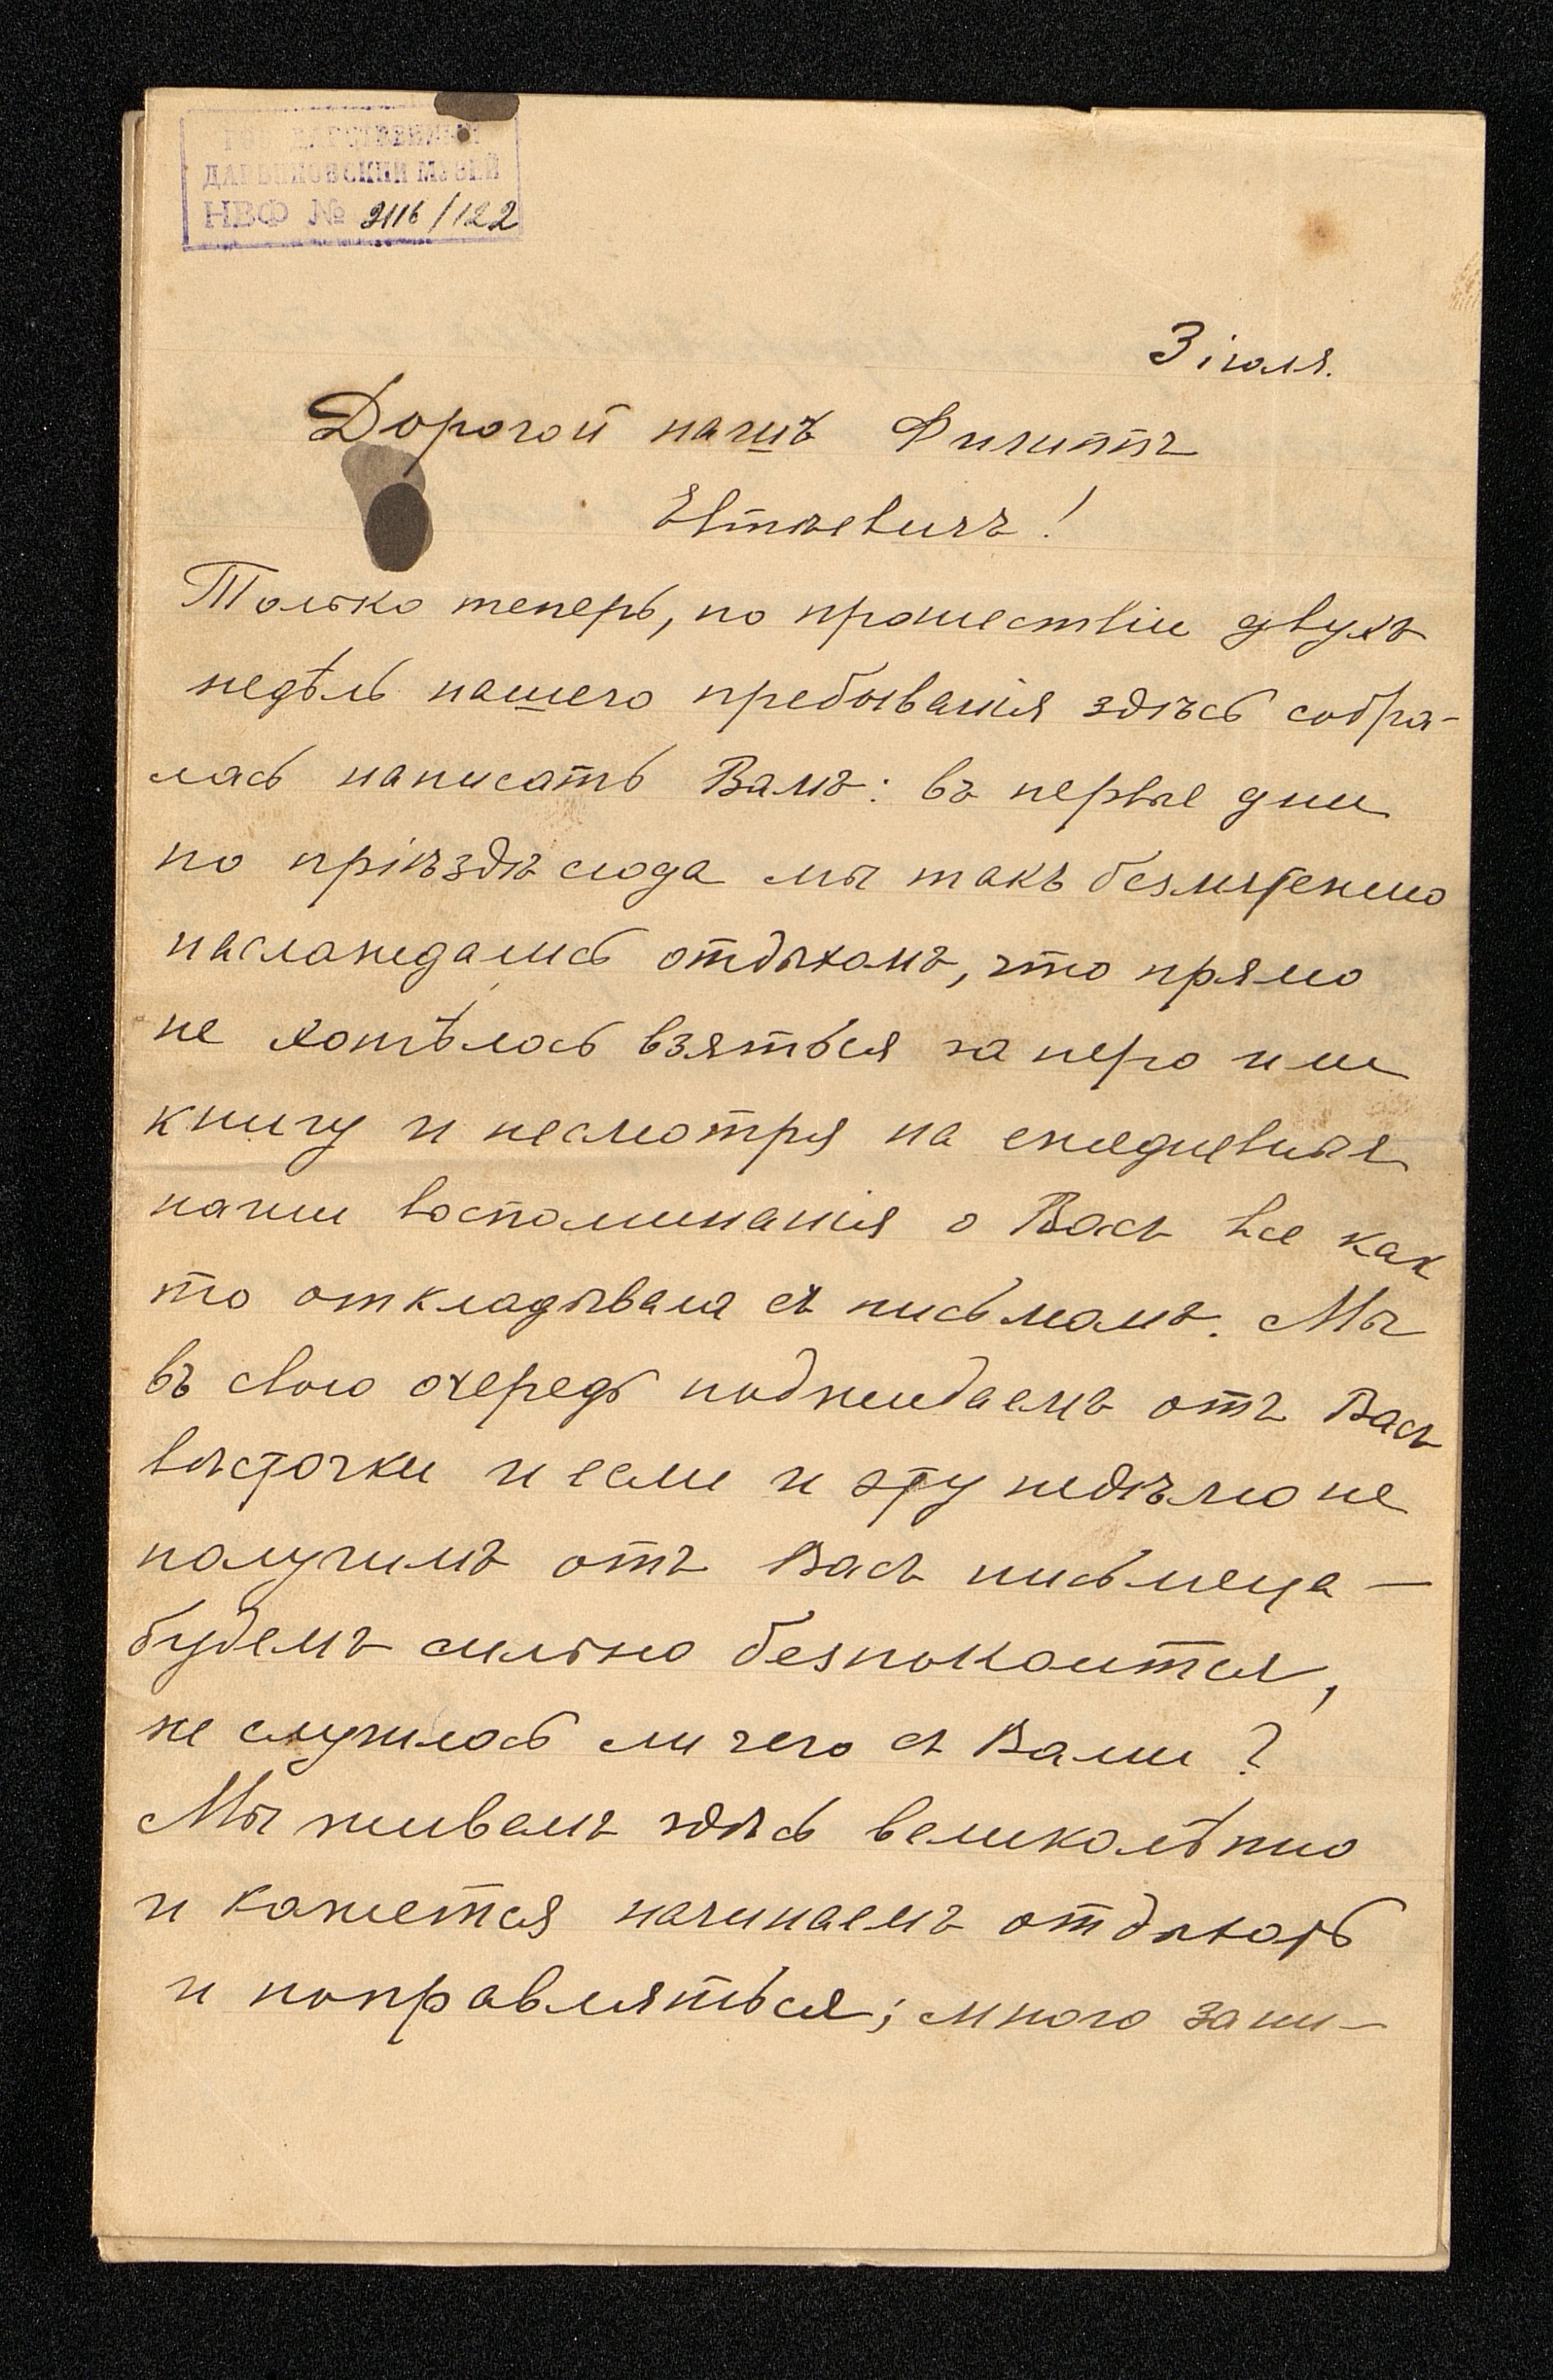 ГОСУДАРСТВЕННЫЙ
ДАРВИНОВСКИЙ МУЗЕЙ
НВФ № 2116/122
3 іюля.
Дорогой нашъ Филиппъ
Евтѣевичъ!
Только теперь, по прошествіи двухъ
недѣль нашего пребыванія здѣсь собра-
лась написать Вамъ: въ первые дни
по пріѣздѣ сюда мы такъ безмятежно
наслаждались отдыхомъ, что прямо
не хотѣлось взяться за перо или
книгу и несмотря на ежедневныя
наши воспоминанія о Васъ все как
то откладывала съ письмомъ. Мы
въ свою очередь поджидаемъ отъ Васъ
вѣсточки и если и эту недѣлю не
получимъ отъ Васъ письмеца —
будемъ сильно безпокоится,
не случилось ли чего съ Вами?
Мы живемъ здѣсь великолѣпно
и кажется начинаемъ отдыхать
и поправляться; много зани-